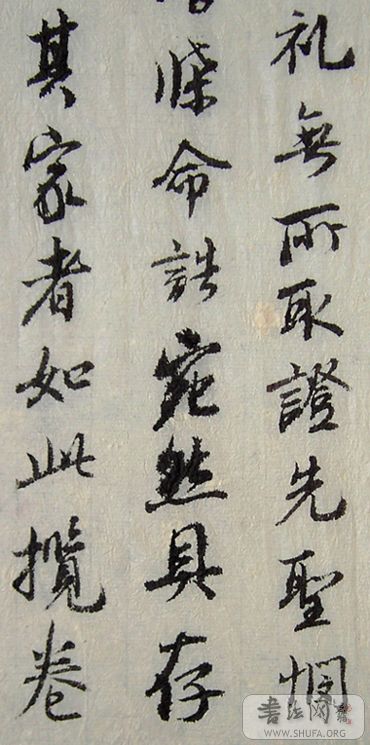 礼無所取證先聖憫
牒命誥宛然具存
其家者如此攬卷
書法网
WWW.SHUFA.ORG